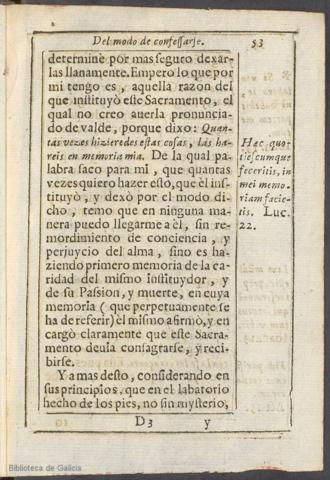 Del modo de confessarse. 53
determinè por mas seguro dexar-
las llanamente. Empero lo que por
mi tengo es, aquella razon del
que instituyò este Sacramento, el
qual no creo auerla pronuncia-
do de valde, porque dixo: Quan-
tas vezes hizieredes estas cosas, las ha-
reis en memoria mia. De la qual pa-
labra saco para mi, que quantas
vezes quiero hazer esto, que èl ins-
tituyò, y dexò por el modo di-
cho, temo que en ninguna ma-
nera puedo llegarme a èl, sin re-
mordimiento de conciencia, y
perjuycio del alma, sino es ha-
ziendo primero memoria de la ca-
ridad del mismo instituydor, y
de su Passion, y muerte, en cuya
memoria (que perpetuamente se
ha de referir) èl mismo afirmò, y en
cargò claramente que este Sacra-
mento deuia consagrarse, y reci-
birse.
Y a mas desto, considerando en
sus principios, que en el labatorio
hecho de los pies, no sin mysterio,
D3 y
Hæc quo-
tiescumque
feceritis, in
mei memo-
riam facie-
tis. Luc.
22.
Biblioteca de Galicia